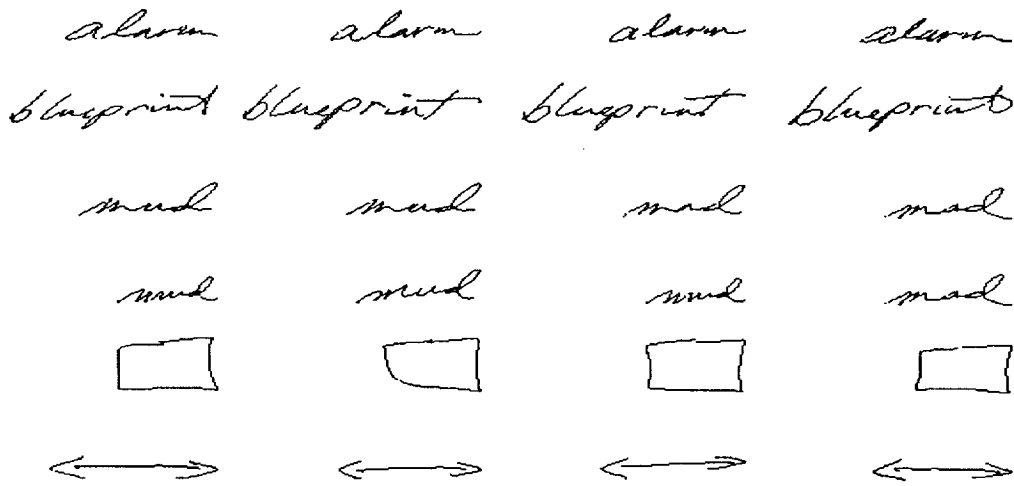 alarm alarm alarm alarm
blueprint blueprint blueprint blueprint
mud mud mad mad
mud mud mud mad